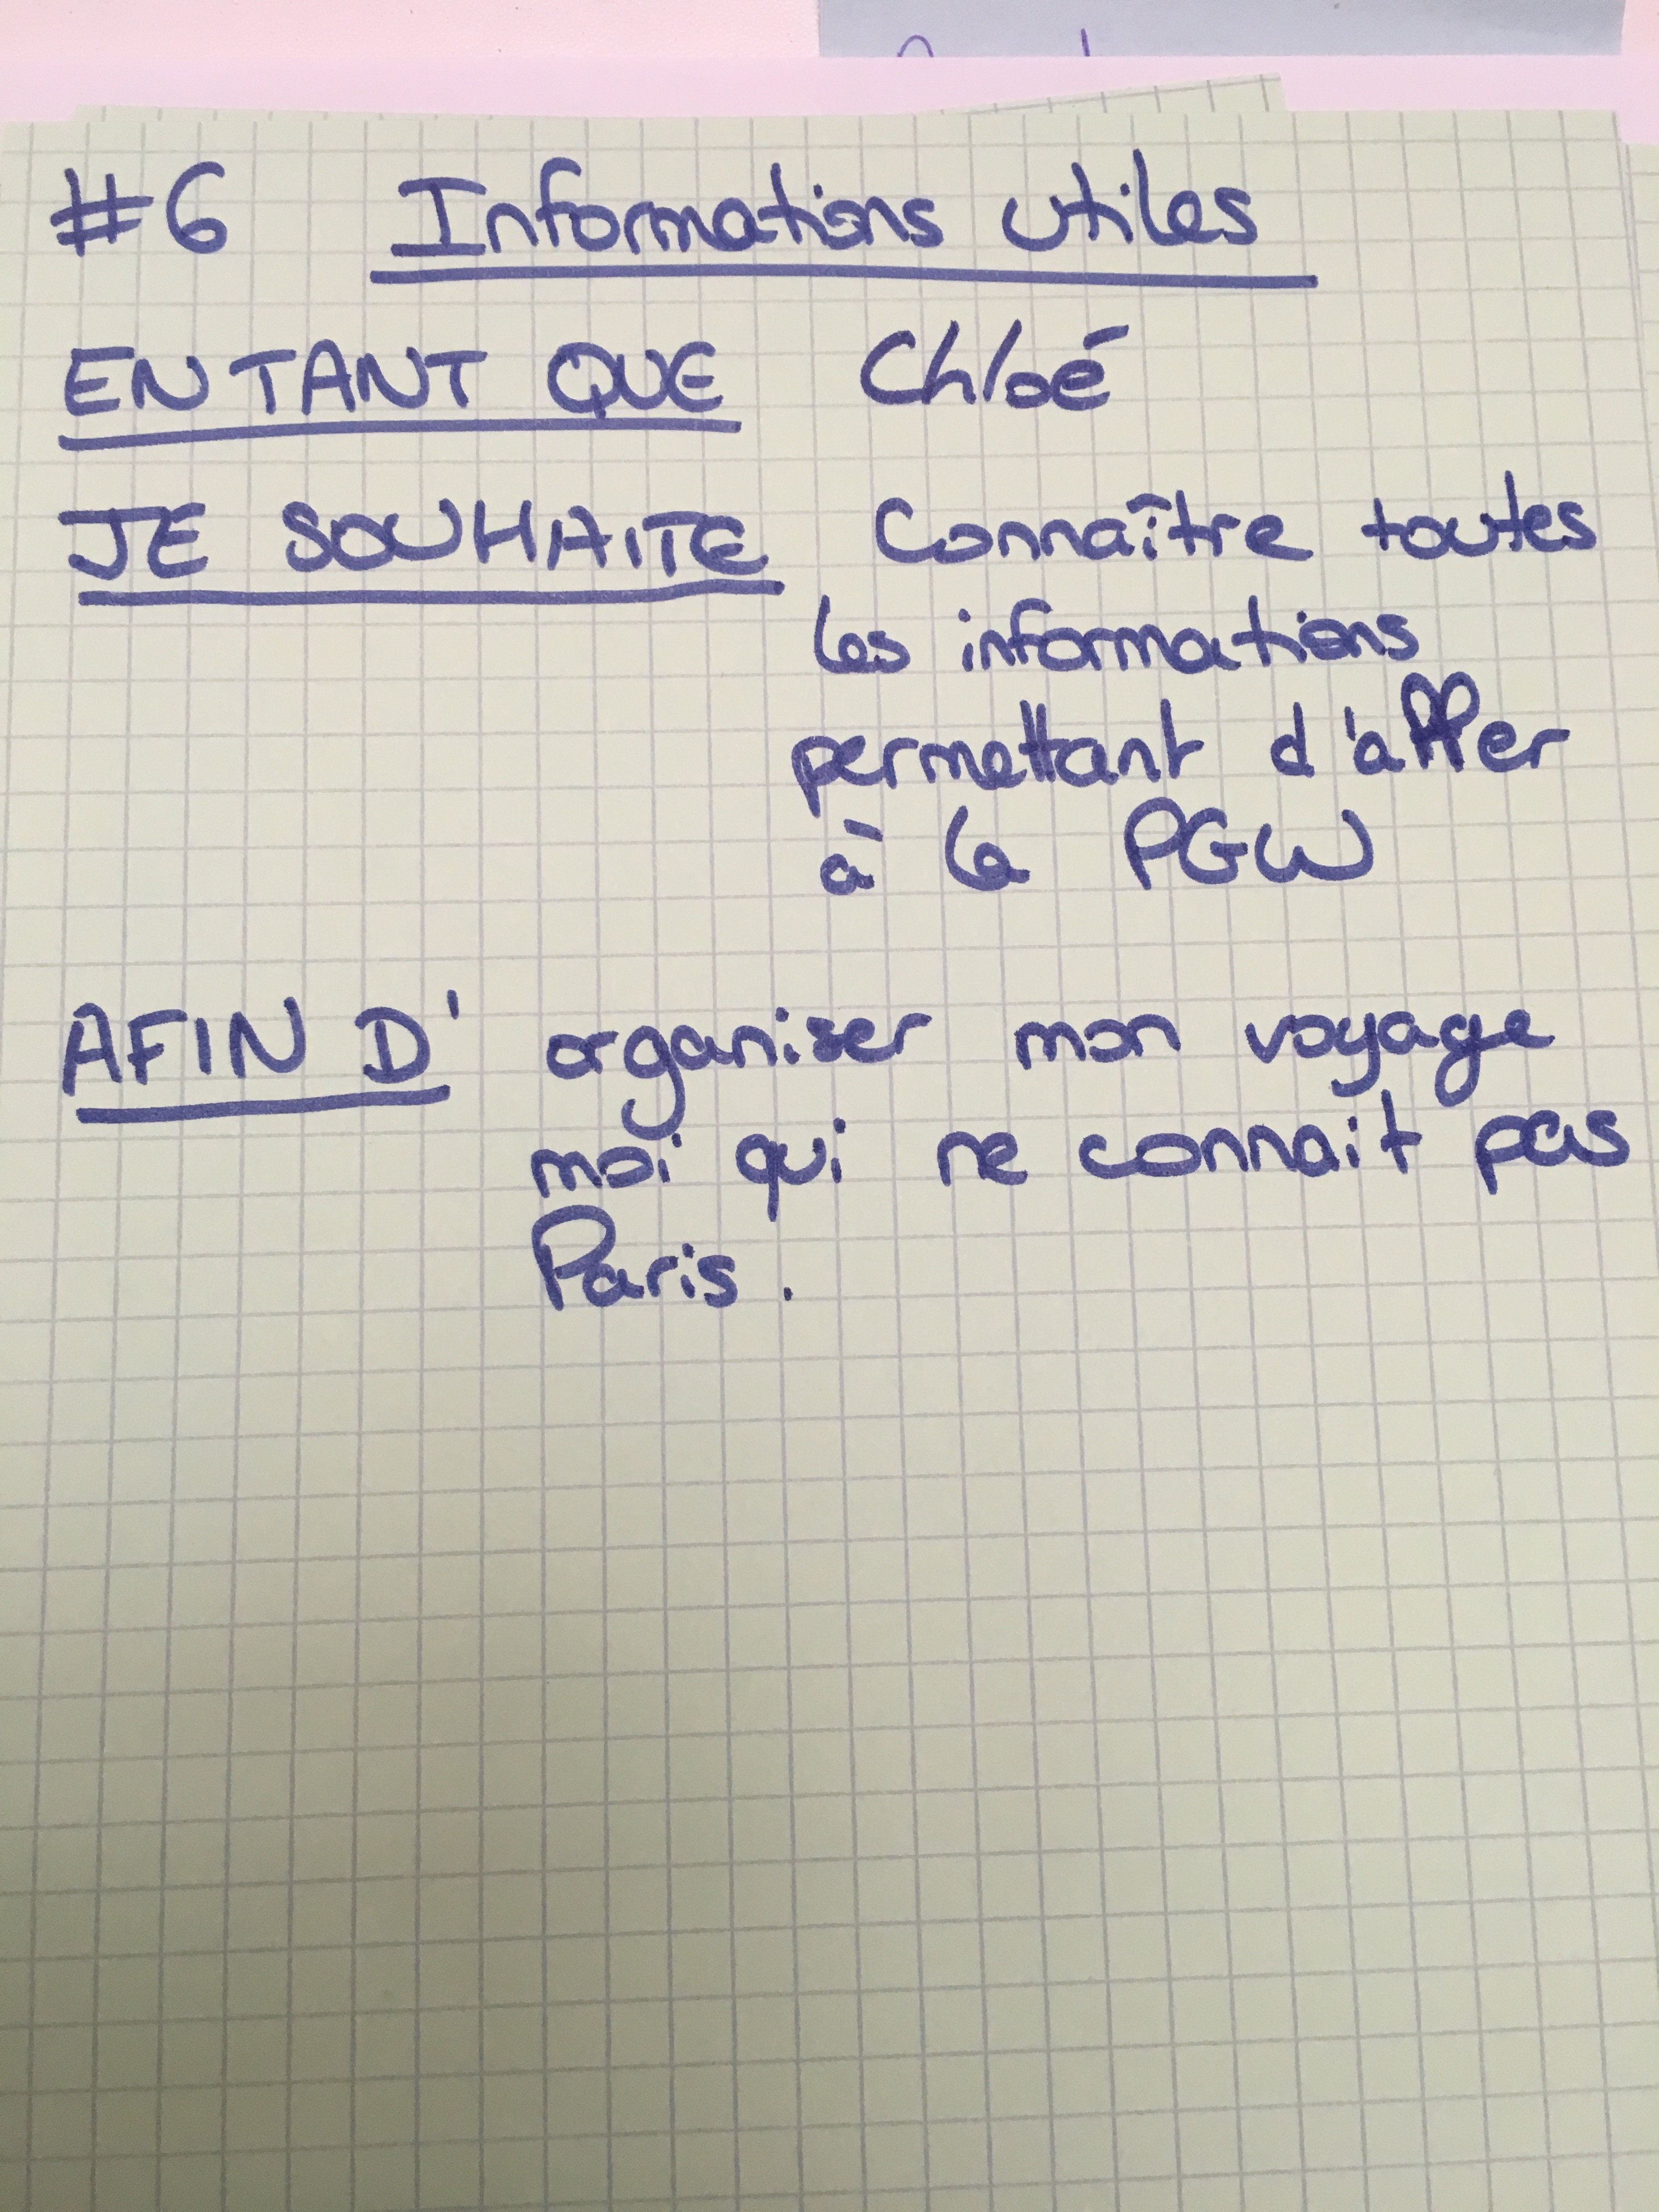 #6 Informations utiles
EN TANT QUE Chloé
JE SOUHAITE Connaître toutes
les informations
permettant d'aller
à la PGW
AFIN D' organiser mon voyage
moi qui ne connait pas
Paris.